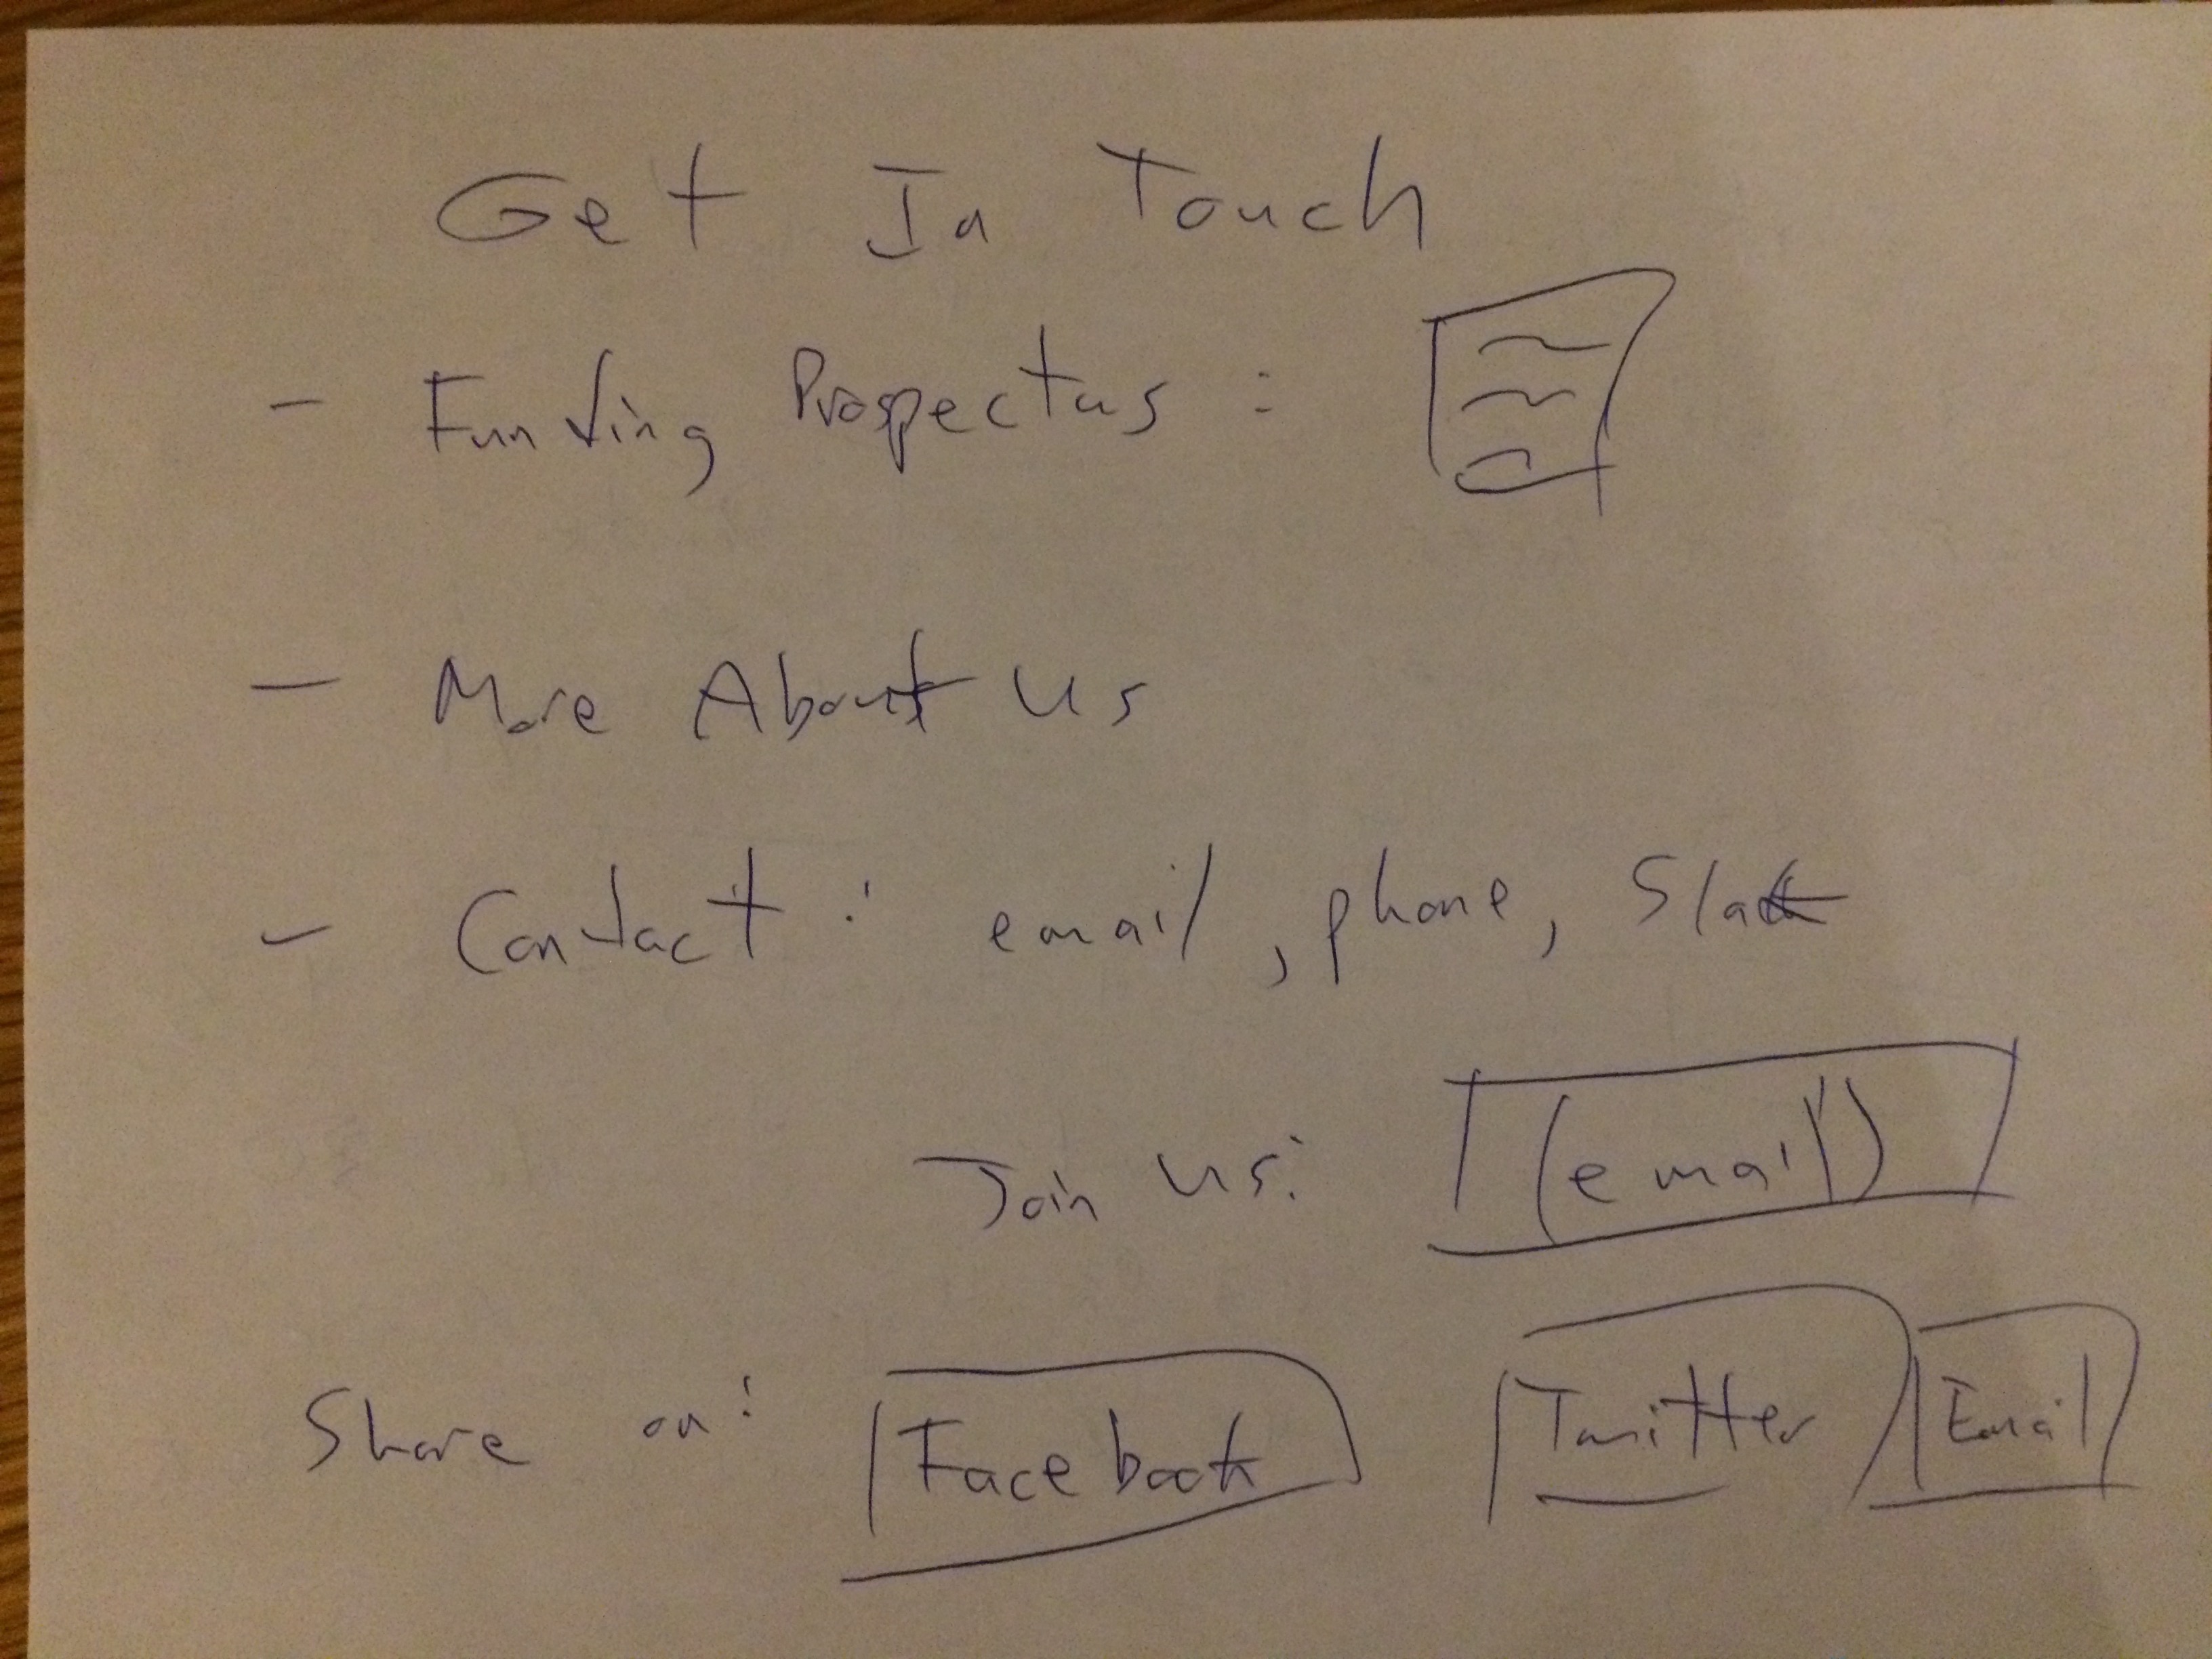 Get In Touch
- Funding Prospectus :
- More About Us
- Contact : email, phone, Slack
Join us: (email)
Share on: Facebook Twitter Email